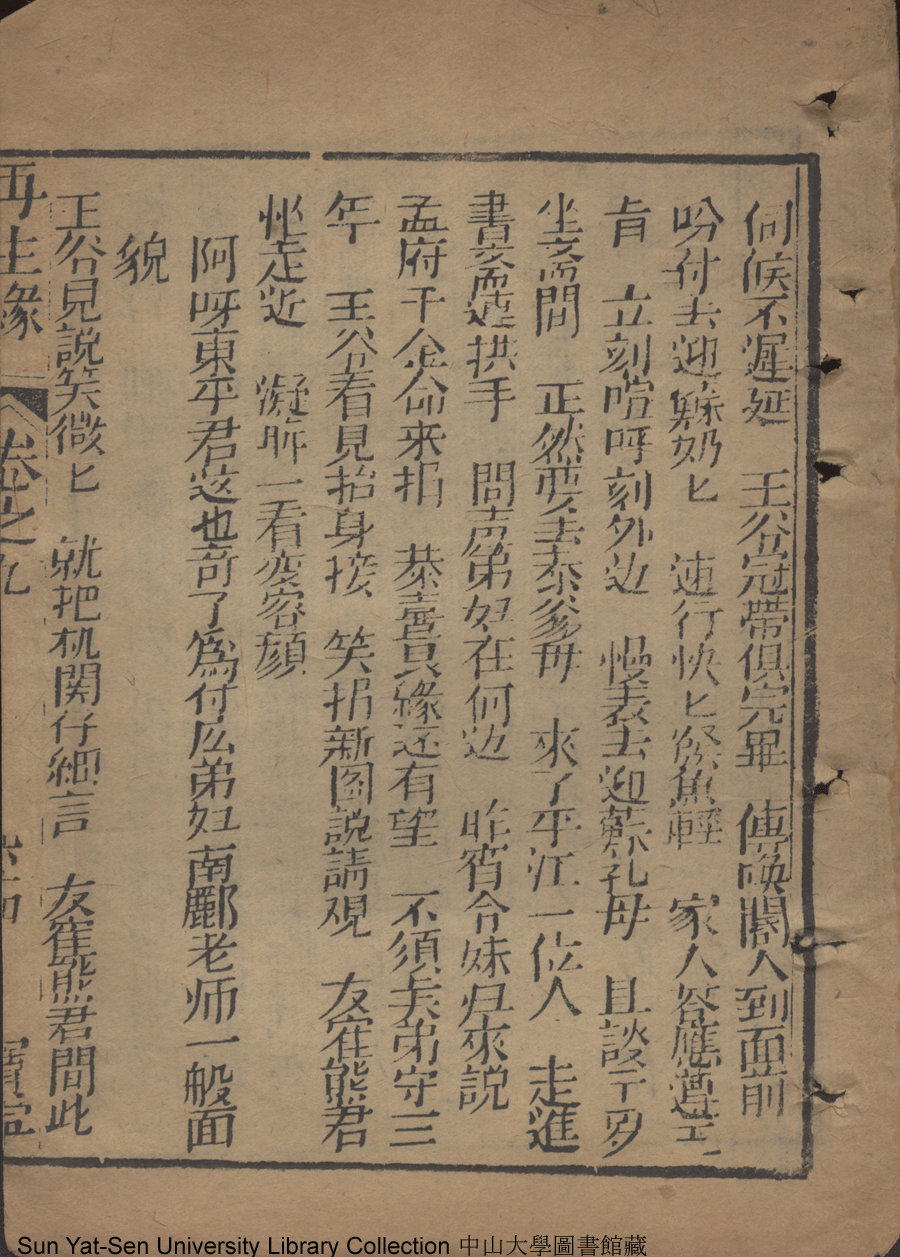 伺候不遲延　王爷冠帶俱完畢　傳喚閣人到面前
吩付去迎蘇奶匕　速行快匕　家人答應遵王
旨　立刻喧呼刻外边　慢表去迎蘇乳母　且談
坐斋間　正然要去泰爹毋　來了平江一位人　走進
書斋連拱手　問声弟妇在何边　昨宵令妹归來説
孟府千金命来捐　恭喜良緣还有望　不須矣弟守三
年　王爷看見抬身接　笑指新图説請观　友崔熊君
忙走近　凝眸一看变容顔
阿呀東平君这也竒了為付庅弟妇南酈老师一般面
貌
王爷見説笑微匕　就把机関仔細言　友崔熊君間此
再生緣　卷之九　寶
Sun Yat-Sen University Library Collection 中山大學圖書館藏